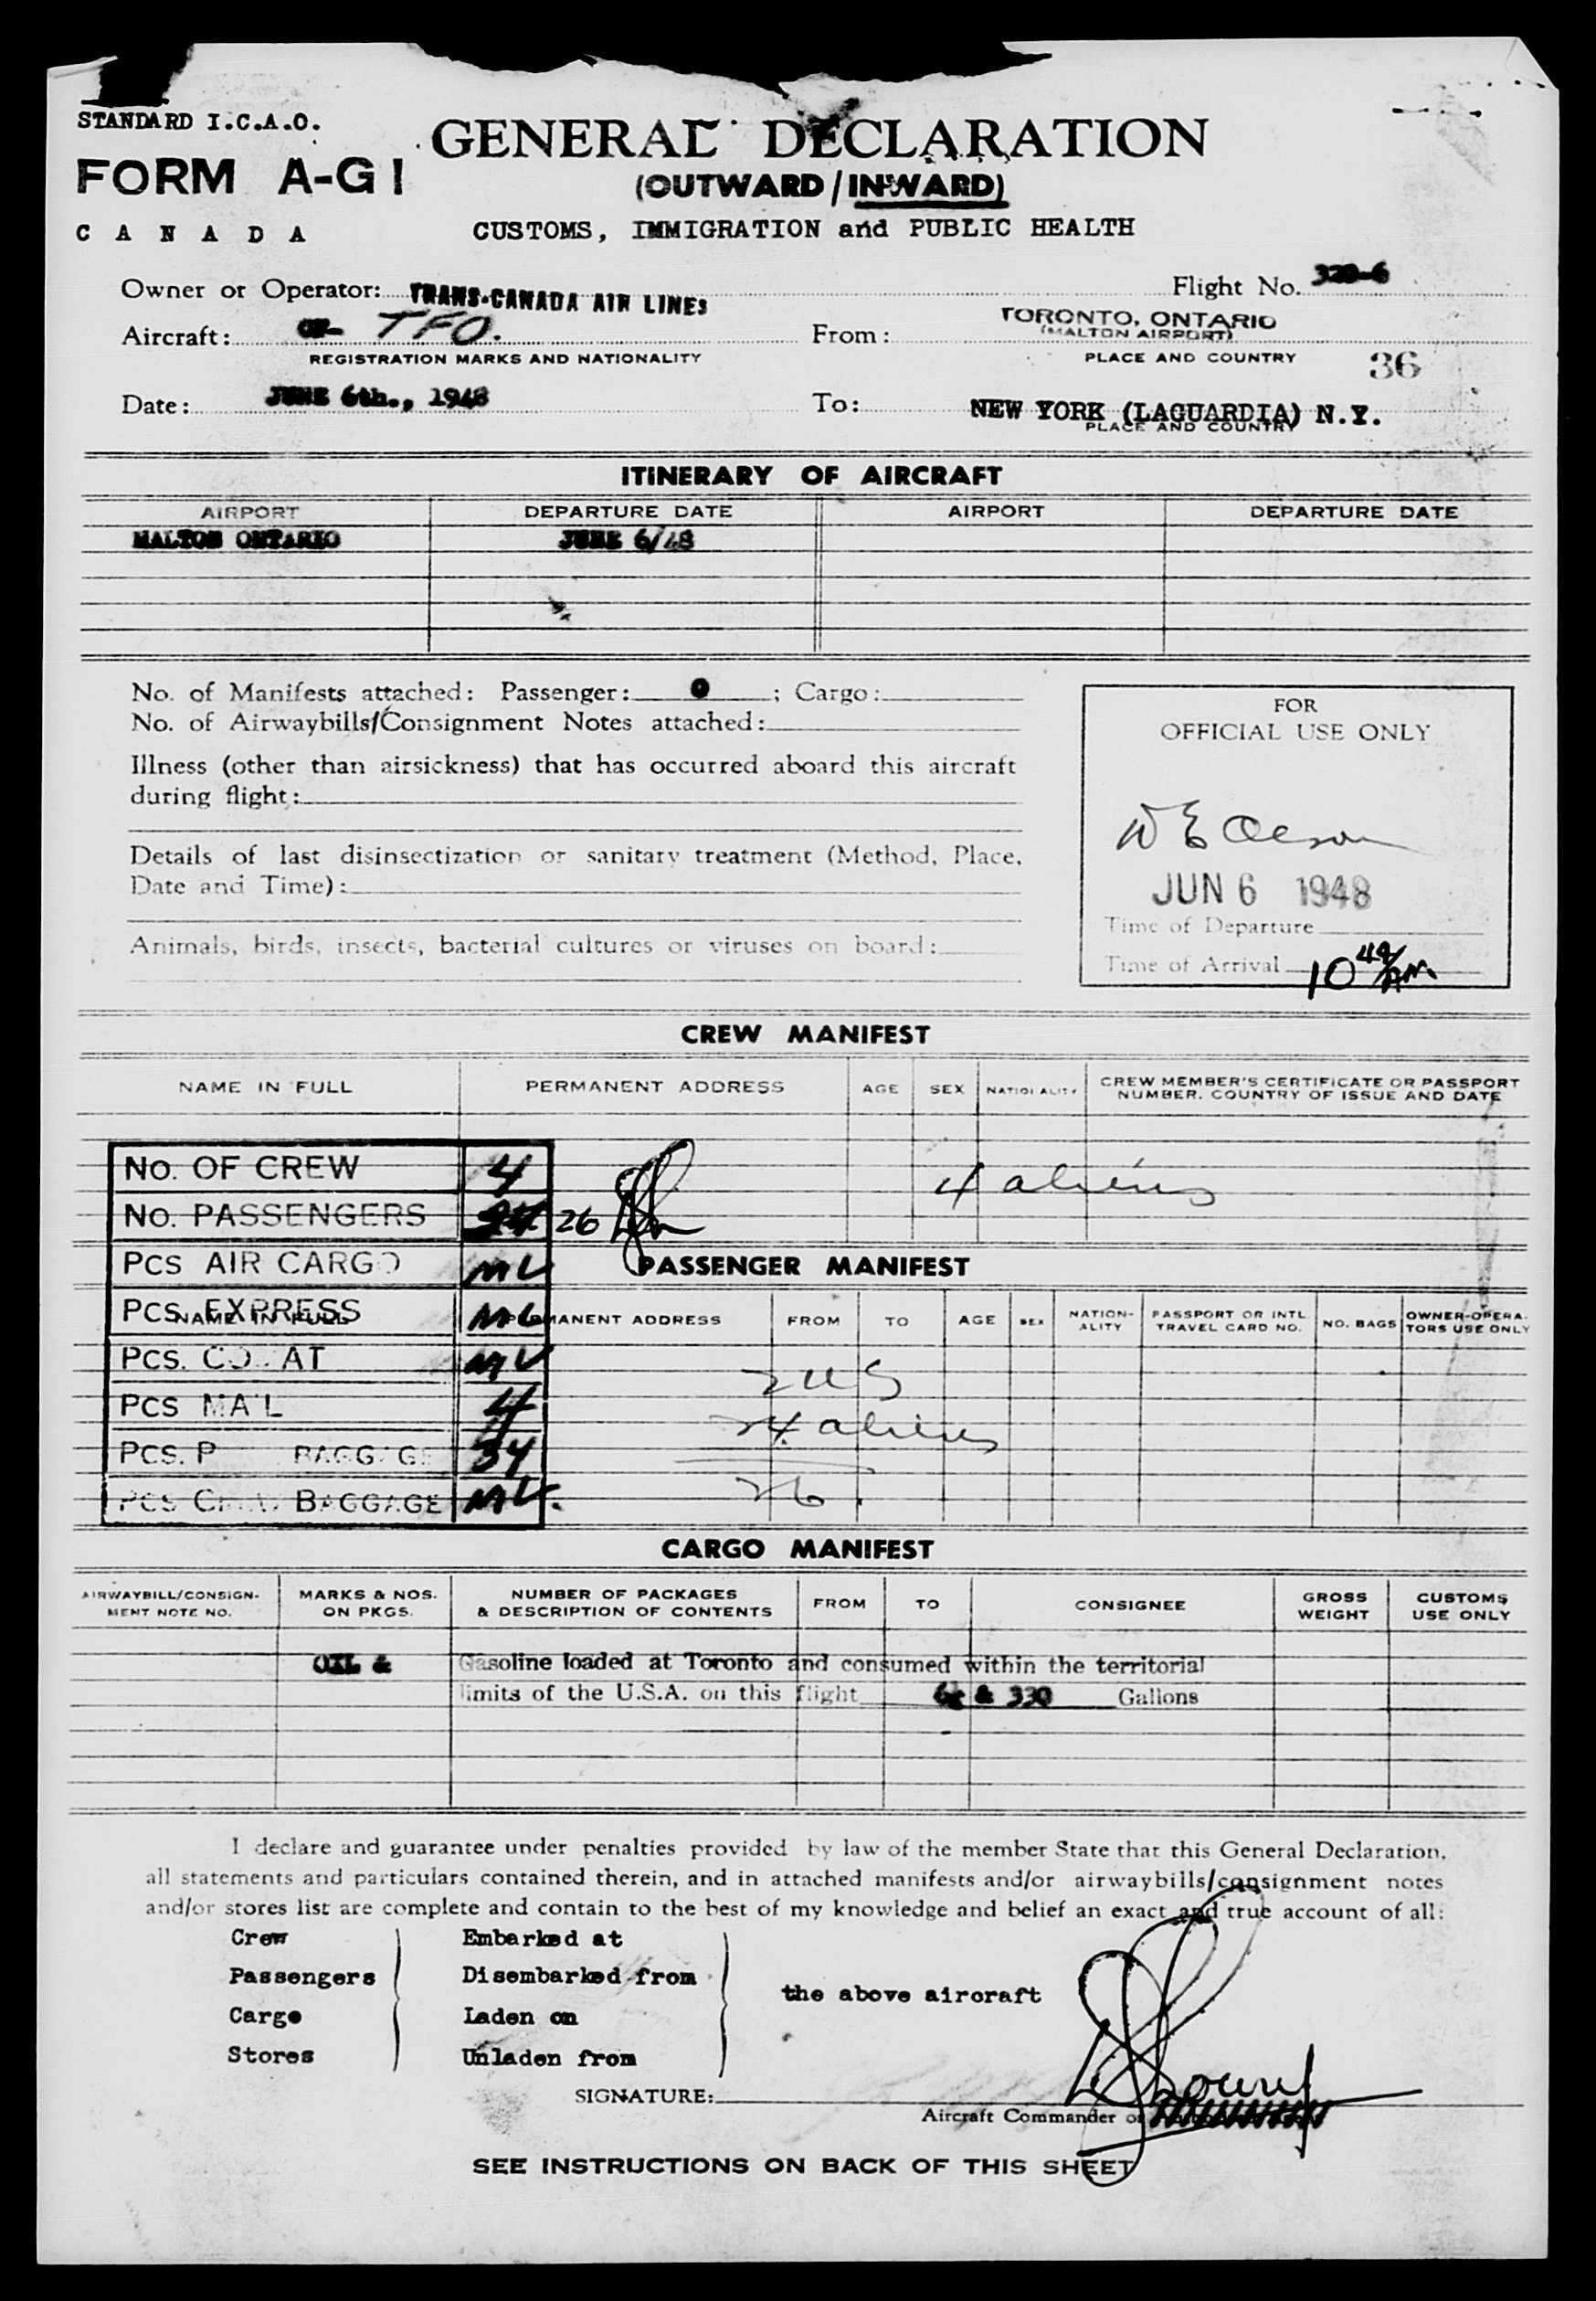 STANDARD I.C.A.O.
GENERAL DECLARATION
FORM A-G1
(OUTWARD/INWARD)
CANADA
CUSTOMS, IMMIGRATION and PUBLIC HEALTH
Owner or Operator: TRANS-CANADA AIR LINES
Flight No. 320-6
Aircraft: CF- TFO.
REGISTRATION MARKS AND NATIONALITY
From: TORONTO, ONTARIO
(MALTON AIRPORT)
PLACE AND COUNTRY
36
Date: JUNE 6th., 1948
To: NEW YORK (LAGUARDIA) N.Y.
PLACE AND COUNTRY
ITINERARY OF AIRCRAFT
AIRPORT DEPARTURE DATE AIRPORT DEPARTURE DATE
MALTON ONTARIO JUNE 6/48
No. of Manifests attached: Passenger: 0 ; Cargo:
No. of Airwaybills/Consignment Notes attached:
Illness (other than airsickness) that has occurred aboard this aircraft
during flight:
Details of last disinsectization or sanitary treatment (Method, Place,
Date and Time):
Animals, birds, insects, bacterial cultures or viruses on board:
FOR
OFFICIAL USE ONLY
W E Olson
JUN 6 1948
Time of Departure
Time of Arrival 10 49/AM
CREW MANIFEST
NAME IN FULL PERMANENT ADDRESS AGE SEX NATIONALITY CREW MEMBER'S CERTIFICATE OR PASSPORT
NUMBER. COUNTRY OF ISSUE AND DATE
No. OF CREW 4
4 aliens
No. PASSENGERS 26
PCS AIR CARGO
PASSENGER MANIFEST
PCS. EXPRESS
NAME IN FULL PERMANENT ADDRESS FROM TO AGE SEX NATION-
ALITY PASSPORT OR INTL
TRAVEL CARD NO. NO. BAGS OWNER-OPERA-
TORS USE ONLY
PCS. CO AT
2 US
PCS MAIL 4
24 aliens
PCS. P BAGGAGE 34
26.
PCS CREW BAGGAGE
CARGO MANIFEST
AIRWAYBILL/CONSIGN-
MENT NOTE NO. MARKS & NOS.
ON PKGS. NUMBER OF PACKAGES
& DESCRIPTION OF CONTENTS FROM TO CONSIGNEE GROSS
WEIGHT CUSTOMS
USE ONLY
OIL & Gasoline loaded at Toronto and consumed within the territorial
limits of the U.S.A. on this flight & 330 Gallons
I declare and guarantee under penalties provided by law of the member State that this General Declaration,
all statements and particulars contained therein, and in attached manifests and/or airwaybills/consignment notes
and/or stores list are complete and contain to the best of my knowledge and belief an exact and true account of all:
Crew Embarked at
Passengers Disembarked from
the above aircraft
Cargo Laden on
Stores Unladen from
SIGNATURE:
Aircraft Commander or
SEE INSTRUCTIONS ON BACK OF THIS SHEET